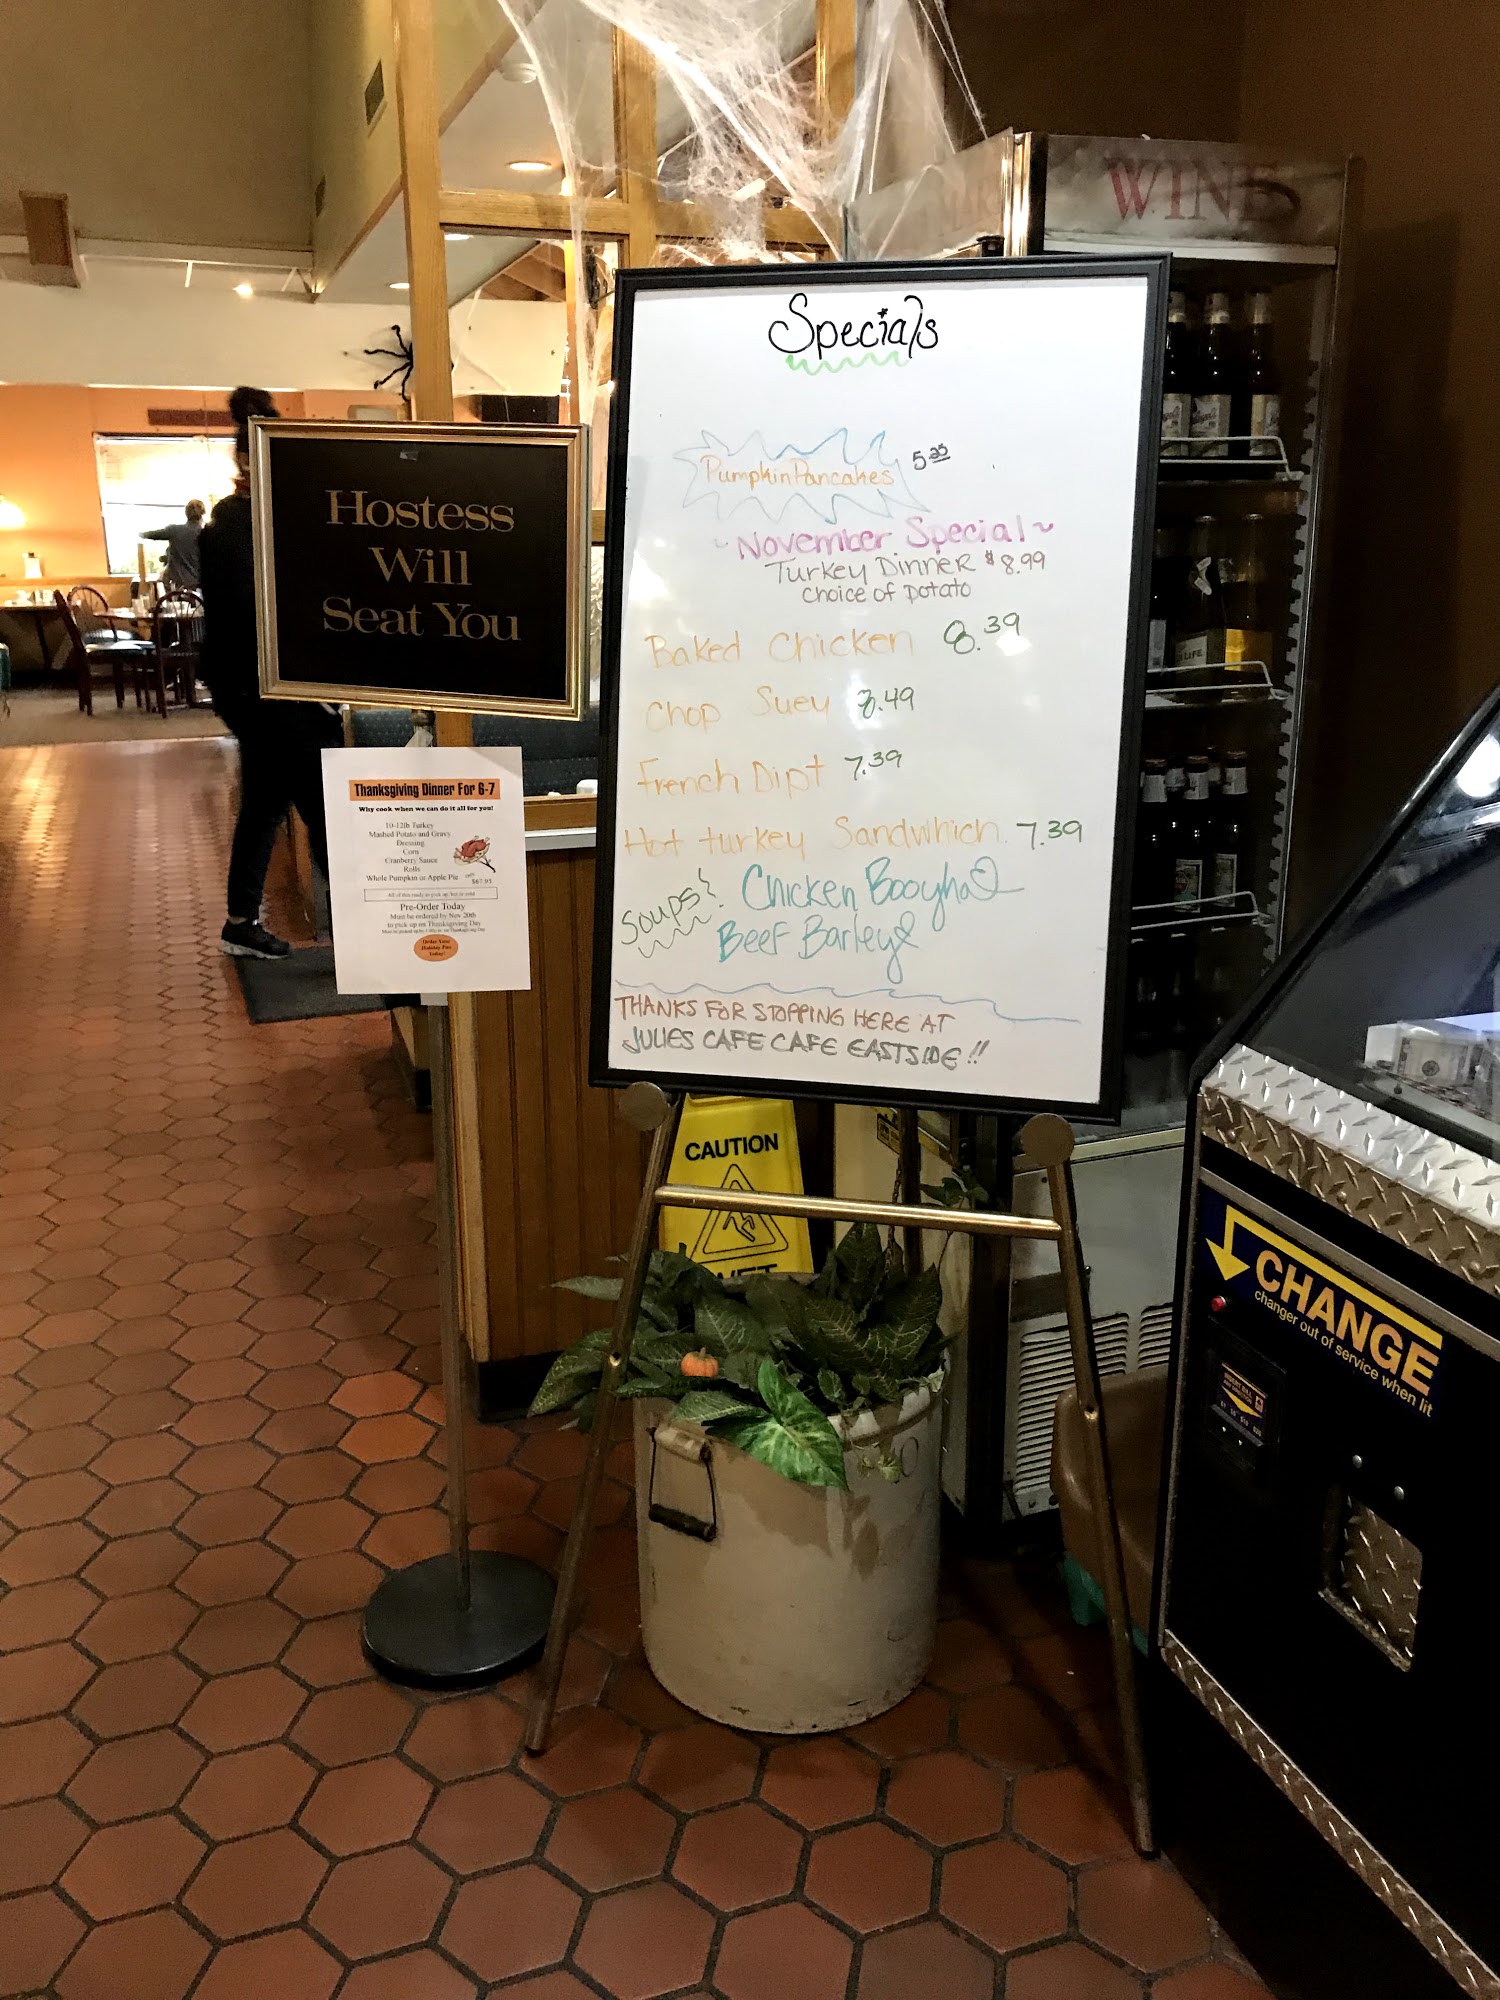 WINE
Specials
Pumpkin Pancakes 5.25
~November Special~
Turkey Dinner $8.99
choice of potato
Baked Chicken 8.39
Chop Suey 8.49
French Dipt 7.39
Hot turkey Sandwhich 7.39
Soups: Chicken Booyha
Beef Barley
THANKS FOR STOPPING HERE AT
JULIES CAFE CAFE EASTSIDE!!
Hostess
Will
Seat You
Thanksgiving Dinner For 6-7
Why cook when we can do it all for you!
10-12lb Turkey
Mashed Potato and Gravy
Dressing
Corn
Cranberry Sauce
Rolls
Whole Pumpkin or Apple Pie
$67.95
Pre-Order Today
Must be ordered by Nov 20th
to pick up on Thanksgiving Day
Order Your
Holiday Pies
Today!
CAUTION
WET
CHANGE
changer out of service when lit
INSERT BILL
LIFE